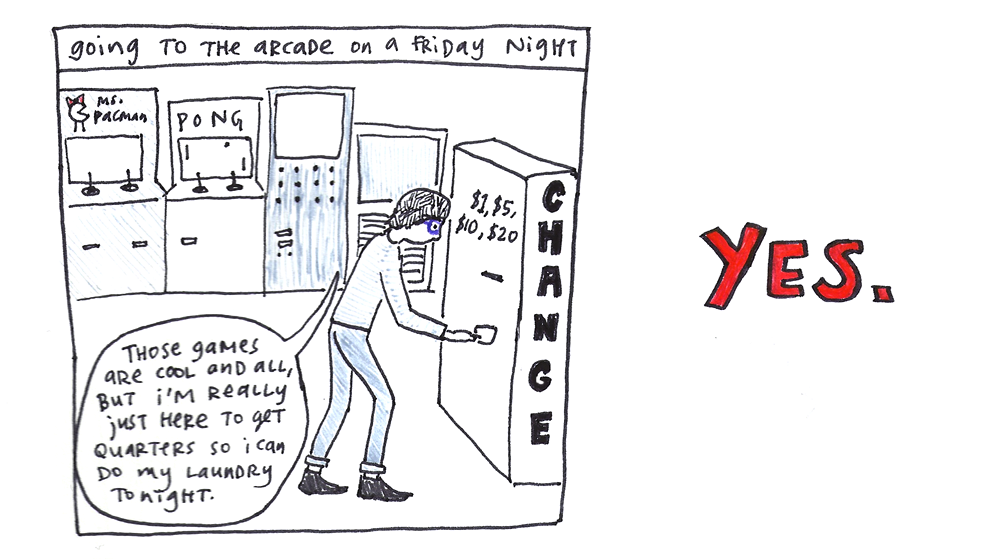 going TO THE ARCADE on a FRiDAY NiGHT
MS.
PACMAN
PONG
$1, $5,
$10, $20
CHANGE
THOSE gAMES
ARE COOL AND ALL,
BUT i'M REALLY
jUST HERE TO gET
QUARTERS SO i CAN
DO MY LAUNDRY
TONigHT.
YES.